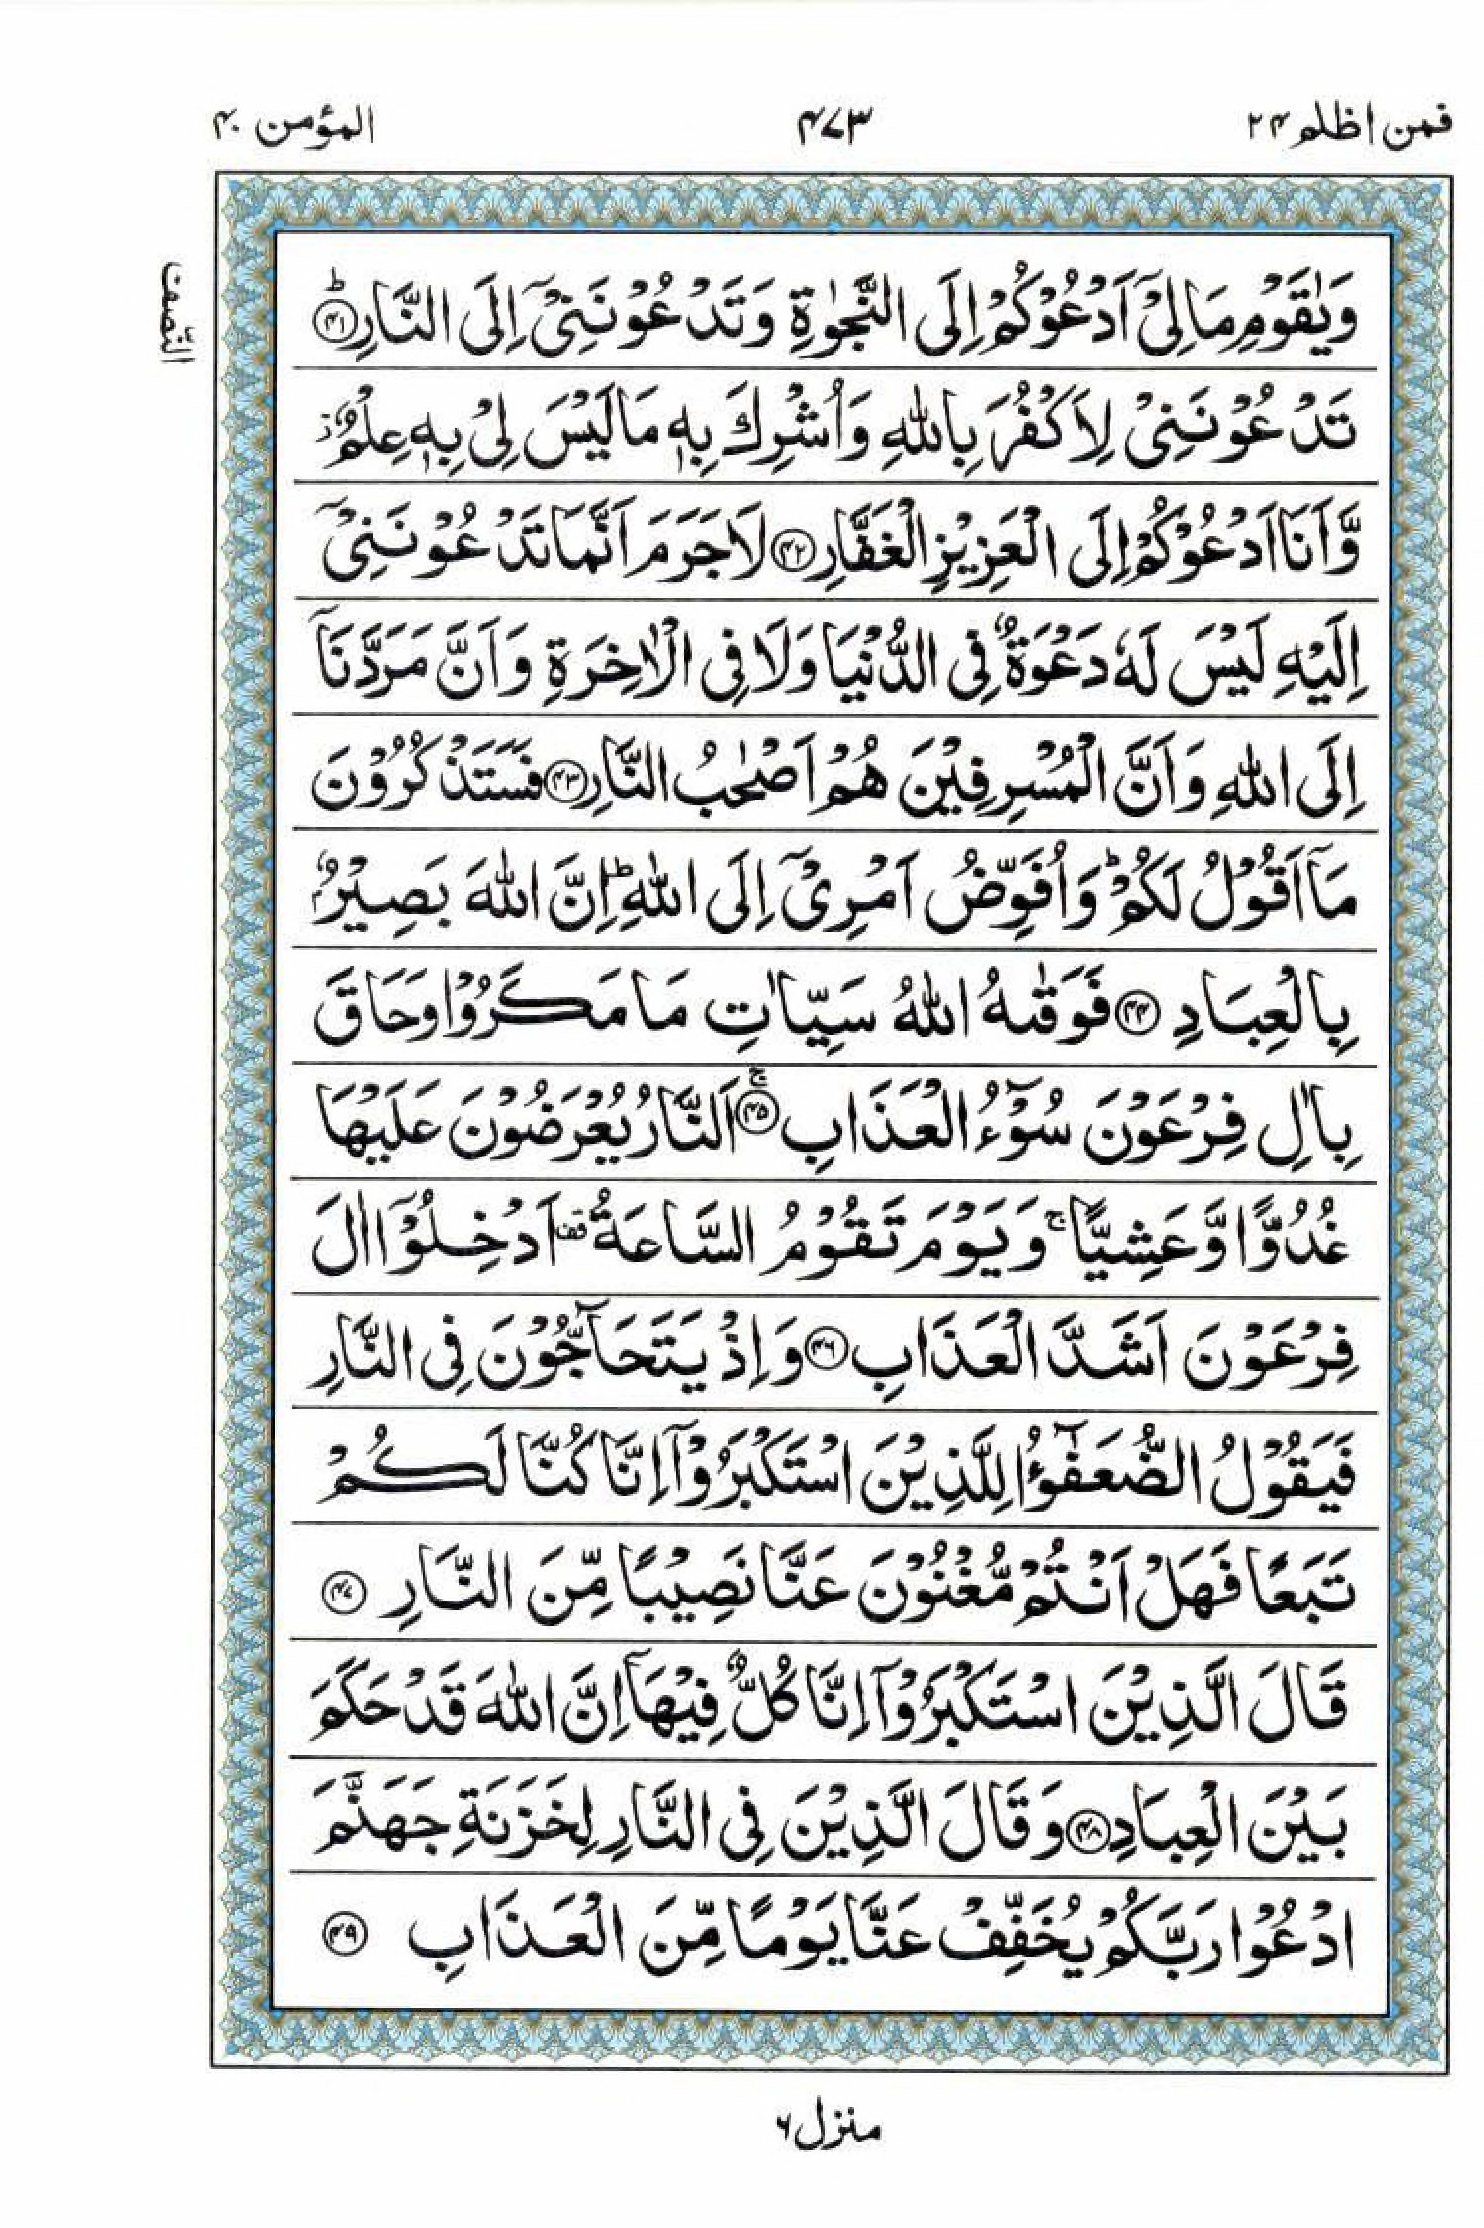 فمن اظلم ۲۴
۴۷۳
المؤمن ۴۰
النّصف
وَيٰقَوْمِ مَا لِىْۤ اَدْعُوْكُمْ اِلَى النَّجٰوةِ وَتَدْعُوْنَنِىْۤ اِلَى النَّارِ ؕ‏﴿۴۱﴾
تَدْعُوْنَنِىْ لِاَكْفُرَ بِاللّٰهِ وَاُشْرِكَ بِهٖ مَا لَيْسَ لِىْ بِهٖ عِلْمٌ ز
وَّاَنَا اَدْعُوْكُمْ اِلَى الْعَزِيْزِ الْغَفَّارِ ﴿۴۲﴾ لَا جَرَمَ اَنَّمَا تَدْعُوْنَنِىْۤ
اِلَيْهِ لَيْسَ لَهٗ دَعْوَةٌ فِى الدُّنْيَا وَلَا فِى الْاٰخِرَةِ وَاَنَّ مَرَدَّنَاۤ
اِلَى اللّٰهِ وَاَنَّ الْمُسْرِفِيْنَ هُمْ اَصْحٰبُ النَّارِ ﴿۴۳﴾ فَسَتَذْكُرُوْنَ
مَاۤ اَقُوْلُ لَكُمْ ؕ وَاُفَوِّضُ اَمْرِىْۤ اِلَى اللّٰهِ ؕ اِنَّ اللّٰهَ بَصِيْرٌۢ
بِالْعِبَادِ ﴿۴۴﴾ فَوَقٰٮهُ اللّٰهُ سَيِّاٰتِ مَا مَكَرُوْا وَحَاقَ
بِاٰلِ فِرْعَوْنَ سُوْٓءُ الْعَذَابِ ۚ ﴿۴۵﴾ اَلنَّارُ يُعْرَضُوْنَ عَلَيْهَا
غُدُوًّا وَّعَشِيًّا ۚ وَيَوْمَ تَقُوْمُ السَّاعَةُ قف اَدْخِلُوْۤا اٰلَ
فِرْعَوْنَ اَشَدَّ الْعَذَابِ ﴿۴۶﴾ وَاِذْ يَتَحَآجُّوْنَ فِى النَّارِ
فَيَقُوْلُ الضُّعَفٰٓؤُا لِلَّذِيْنَ اسْتَكْبَرُوْۤا اِنَّا كُنَّا لَكُمْ
تَبَعًا فَهَلْ اَنْتُمْ مُّغْنُوْنَ عَنَّا نَصِيْبًا مِّنَ النَّارِ ﴿۴۷﴾
قَالَ الَّذِيْنَ اسْتَكْبَرُوْۤا اِنَّا كُلٌّ فِيْهَاۤ اِنَّ اللّٰهَ قَدْ حَكَمَ
بَيْنَ الْعِبَادِ ﴿۴۸﴾ وَقَالَ الَّذِيْنَ فِى النَّارِ لِخَزَنَةِ جَهَنَّمَ
ادْعُوْا رَبَّكُمْ يُخَفِّفْ عَنَّا يَوْمًا مِّنَ الْعَذَابِ ﴿۴۹﴾
منزل ۶